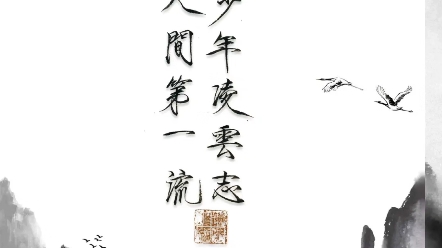 少年陵雲志
人間第一流